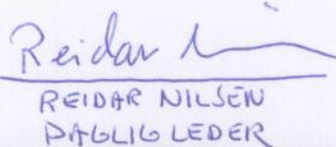 Reidar N
REIDAR NILSEN
DAGLIG LEDER